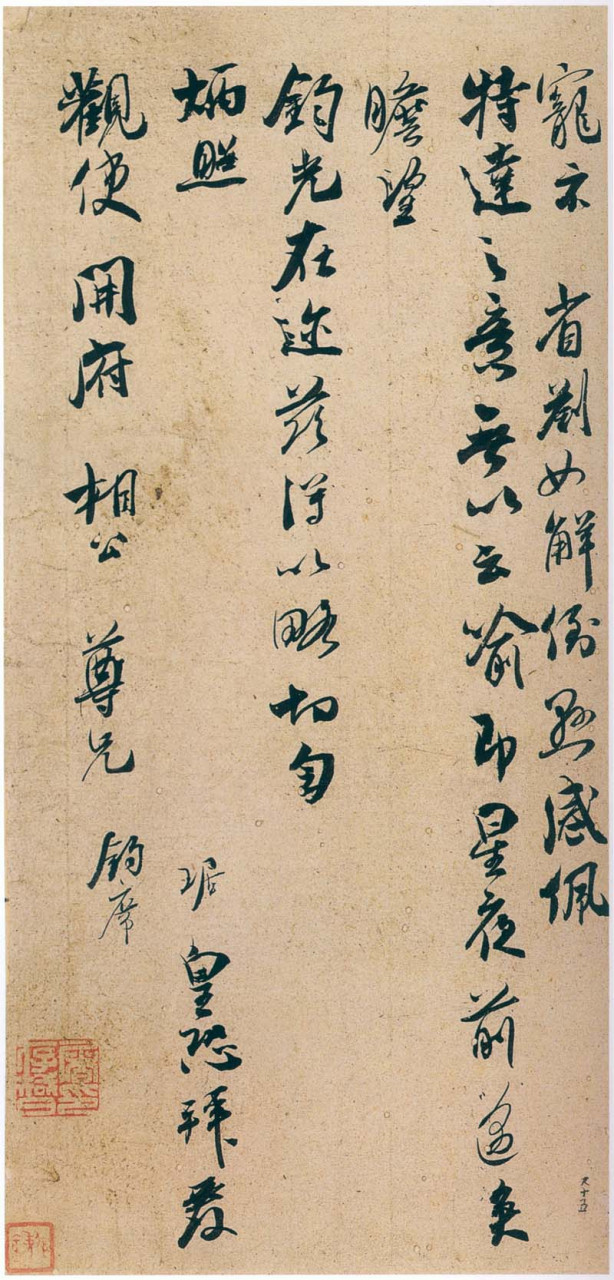 寵示 省劄如解倒懸感佩
特達之意無以云喻即星夜前邁矣
瞻望
鈞光在邇茲得以略切匄
炳照
琚 皇恐拜覆
觀使 開府 相公 尊兄 鈞席
九十五